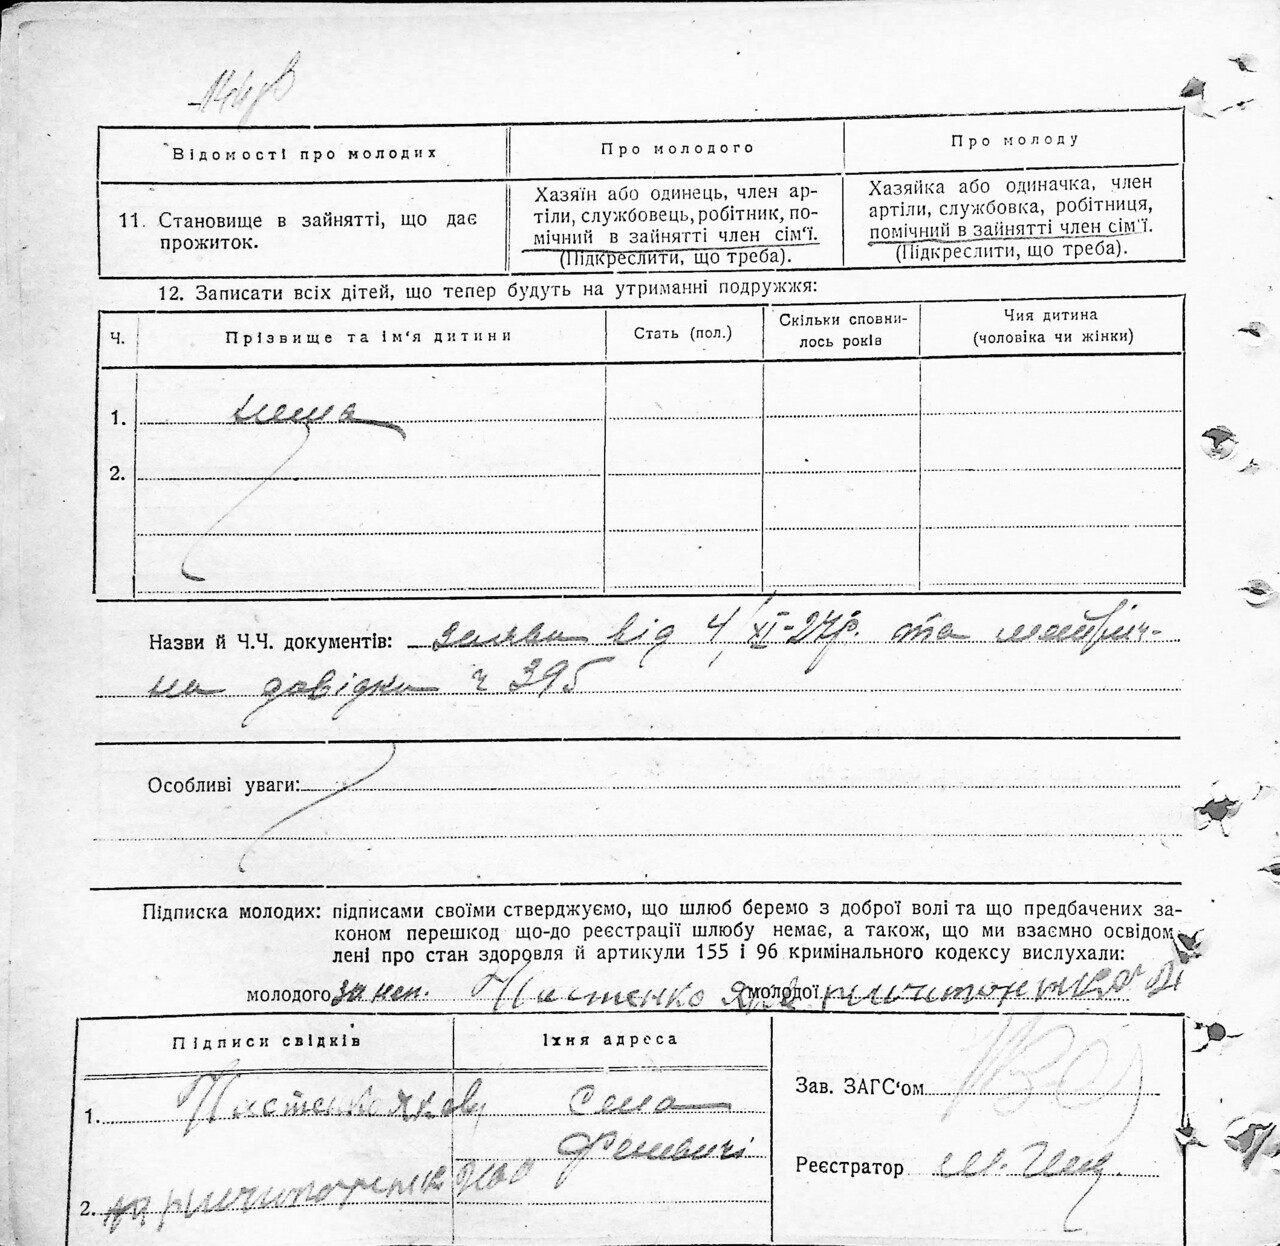 Відомості про молодих
Про молодого
Про молоду
11. Становище в зайнятті, що дає
прожиток.
Хазяїн або одинець, член ар-
тіли, службовець, робітник, по-
мічний в зайнятті член сім'ї.
(Підкреслити, що треба).
Хазяйка або одиначка, член
артіли, службовка, робітниця,
помічний в зайнятті член сім'ї.
(Підкреслити, що треба).
12. Записати всіх дітей, що тепер будуть на утриманні подружжя:
Ч.
Прізвище та ім'я дитини
Стать (пол.)
Скільки сповни-
лось років
Чия дитина
(чоловіка чи жінки)
1.
2.
Назви й Ч.Ч. документів: заява від 4/XI-27р. та метрич-
на довідка ч 395
Особливі уваги:
Підписка молодих: підписами своїми стверджуємо, що шлюб беремо з доброї волі та що предбачених за-
коном перешкод що-до реєстрації шлюбу немає, а також, що ми взаємно освідом
лені про стан здоровля й артикули 155 і 96 кримінального кодексу вислухали:
молодого за неп. молодої
Підписи свідків
Їхня адреса
1.
Села
2.
Зав. ЗАГС'ом
Реєстратор